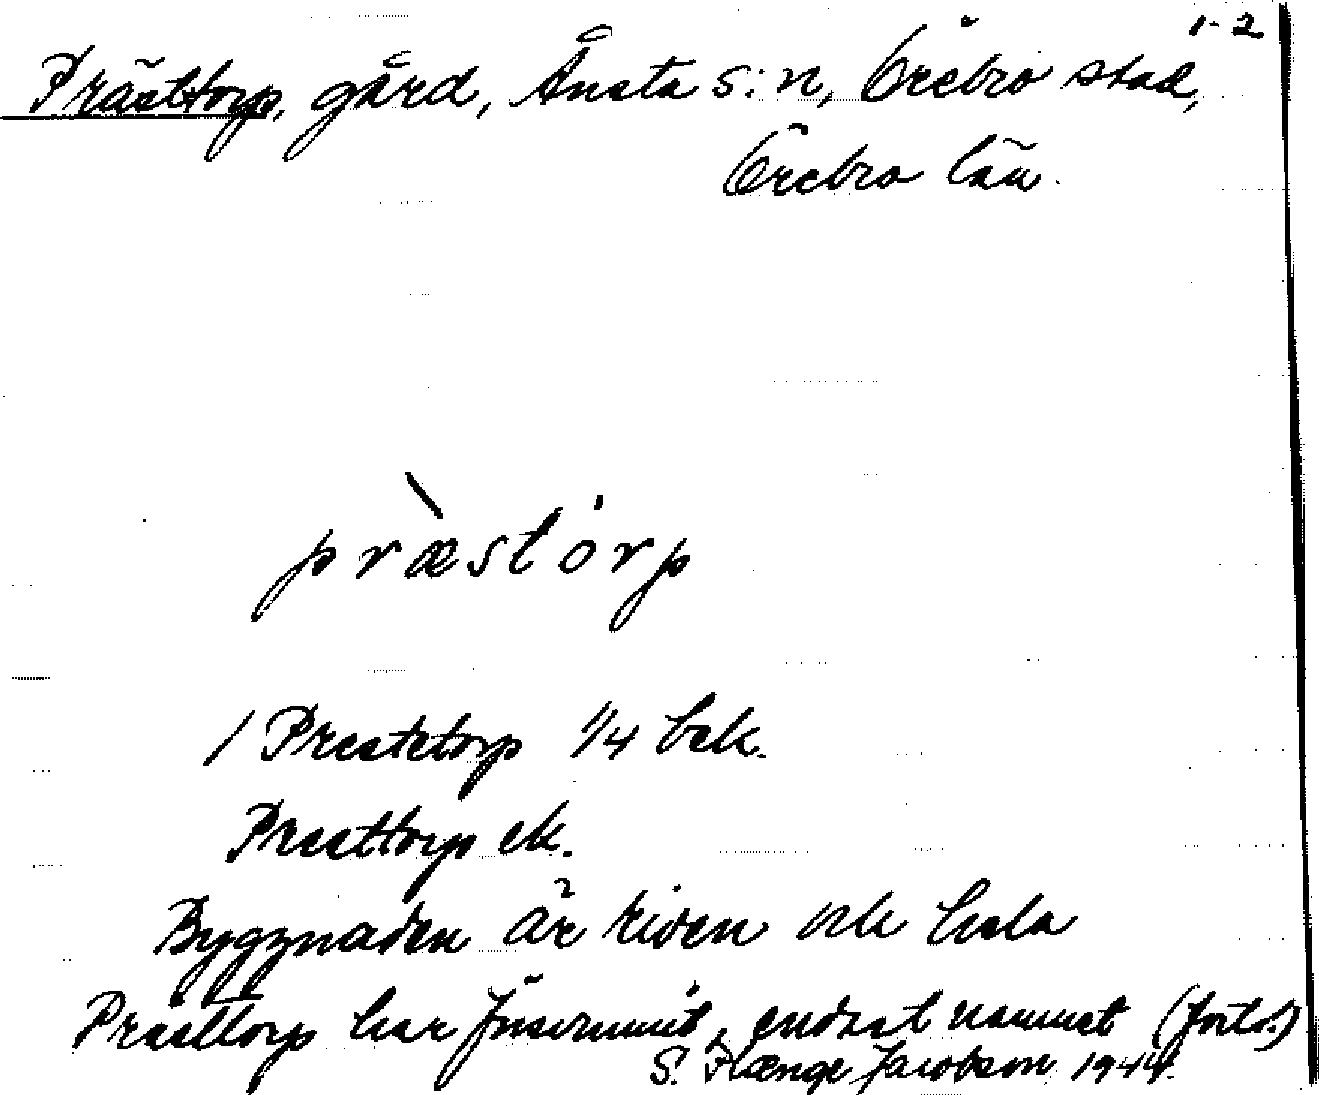 1-2
Prästtorp, gård, Ånsta s:n, Örebro stad,
Örebro län.
præstorp
1 Prestetorp 1/4 bek.
Presttorp ek.
Byggnaden är riven och hela
Prästtorp har försvunnit, endast namnet (forts.)
S. Flænge Jacobson 1944.